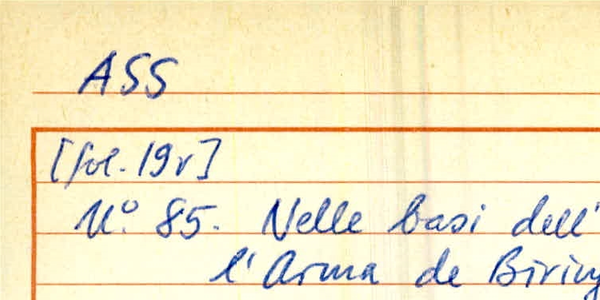 ASS
[fol. 19v]
N.º 85. Nelle basi dell'
l'Arma de Biring